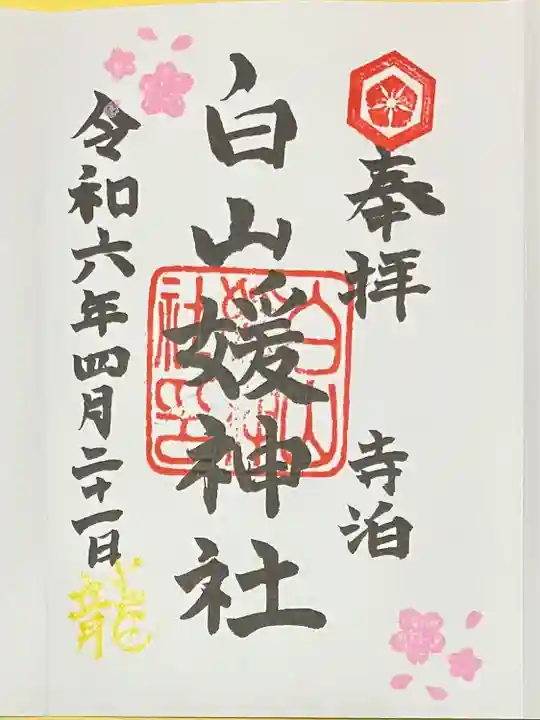 奉拝 寺泊
白山媛神社
令和六年四月二十一日
龍